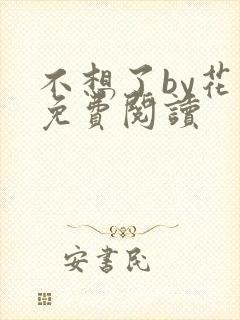 不想了by花
免費閱讀
安書民